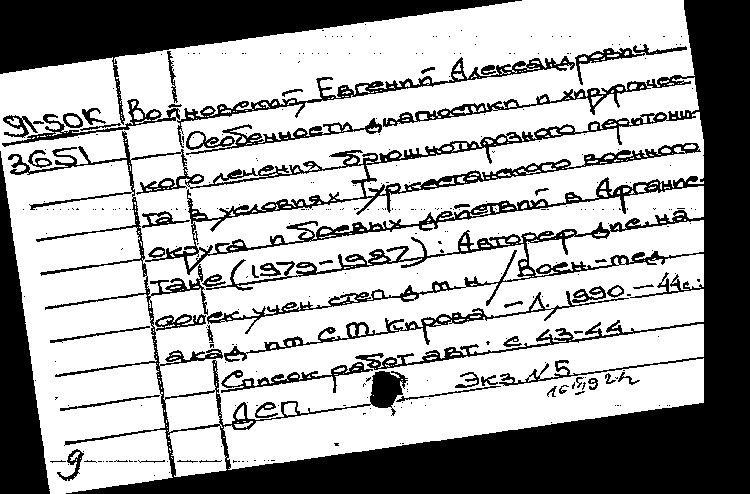 91-50К Войновский, Евгений Александрович
3651 Особенности диагностики и хирургичес-
кого лечения брюшнотифозного перитони-
та в условиях Туркестанского военного
округа и боевых действий в Афганис-
тане (1979-1987): Автореф. дис. на
соиск. учен. степ. д.м.н. / Воен.-мед.
акад. им. С.М. Кирова. – Л., 1990. – 44с.:
Список работ авт.: с. 43-44.
ДСП. Экз. № 5
9